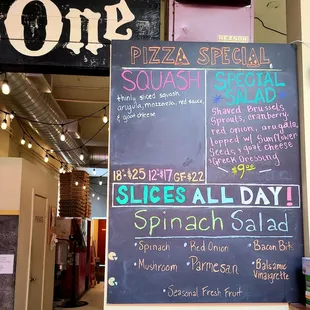 One
PIZZA SPECIAL
SQUASH
thinly sliced squash,
arugula, mozzarella, red sauce,
& goat cheese
SPECIAL
SALAD
Shaved Brussels
Sprouts, cranberry,
red onion, arugula
topped w/ Sunflower
Seeds, & goat cheese
Greek Dressing
$9.00
18"-$25 12"-$17 GF-$22
SLICES ALL DAY!
Spinach Salad
· Spinach · Red Onion · Bacon Bits
· Mushroom · Parmesan · Balsamic
Vinaigrette
· Seasonal Fresh Fruit